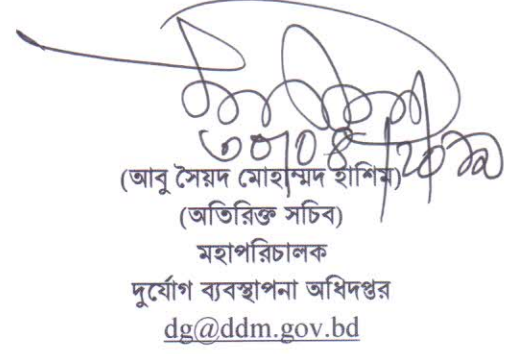 ৩০/০৪/২০১৯
(আবু সৈয়দ মোহাম্মদ হাশিম)
(অতিরিক্ত সচিব)
মহাপরিচালক
দুর্যোগ ব্যবস্থাপনা অধিদপ্তর
dg@ddm.gov.bd